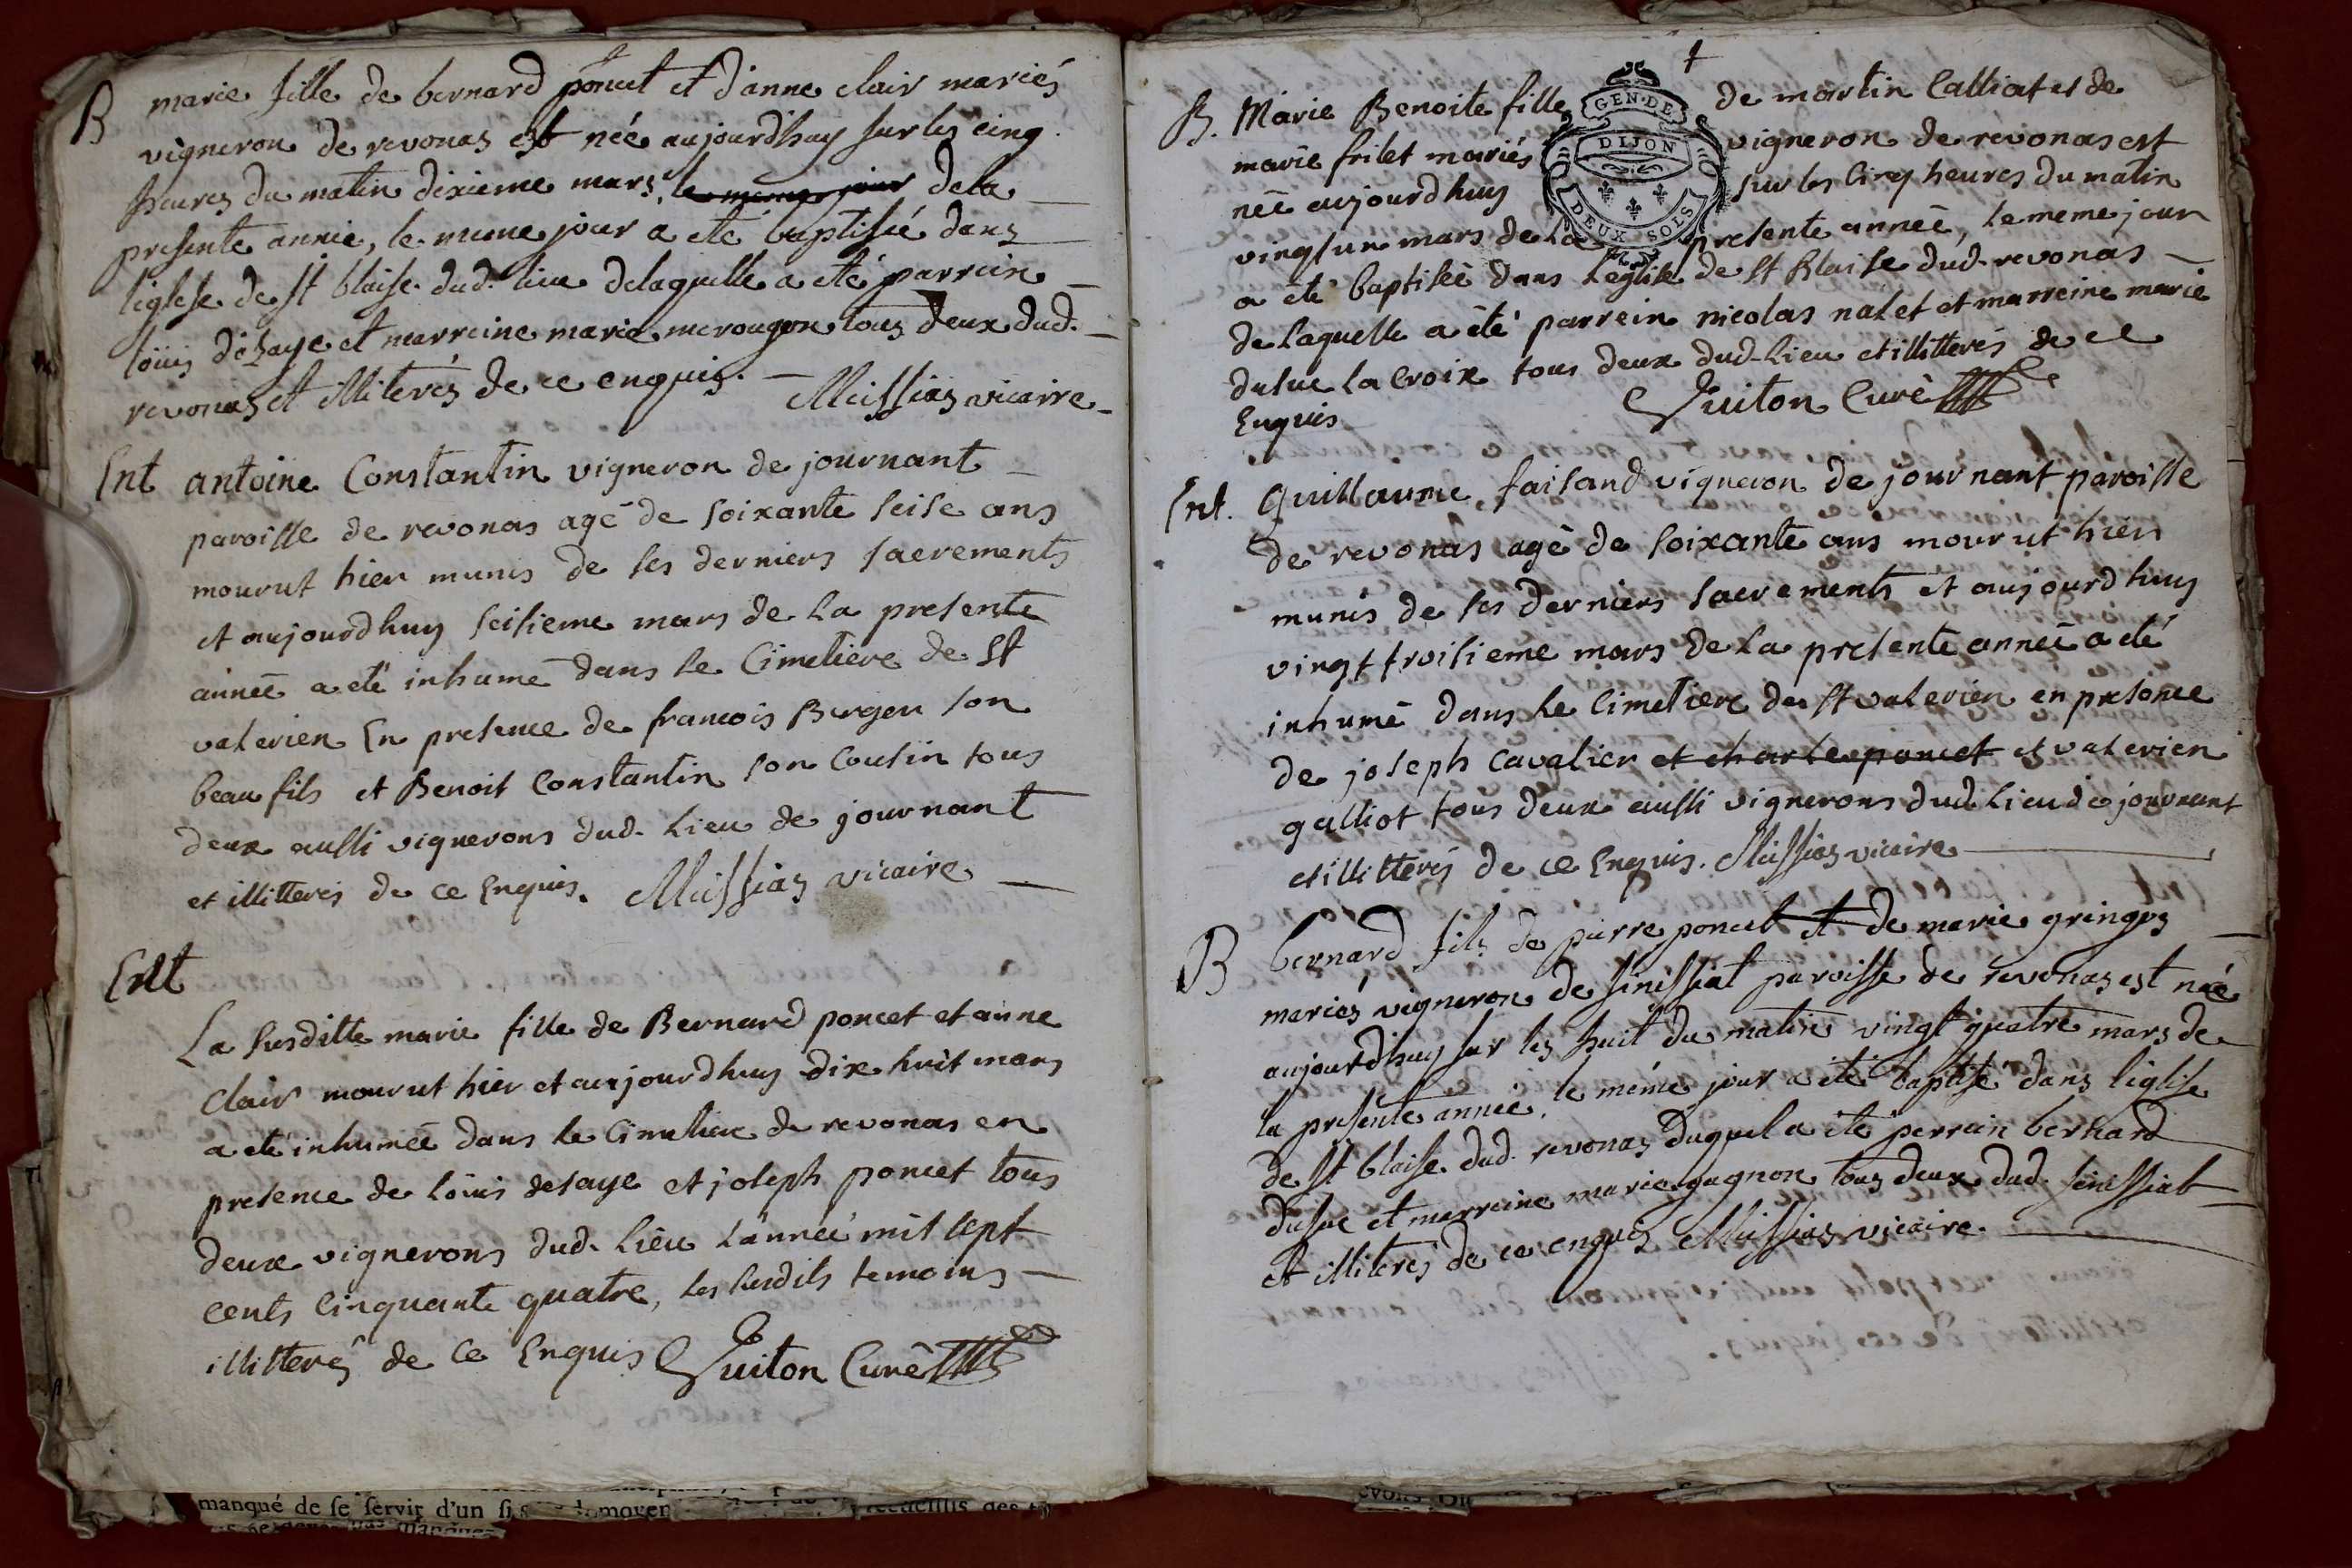 B marie fille de bernard poncet et d'anne clair mariés
vigneron de revonas est née aujourd'huy sur les cinq
heures du matin dixieme mars, le meme jour dela
presente année, le meme jour a eté baptisée dans
l'eglese de st blaise dud. lieu delaquelle a eté parrein
loüis désaye et marreine marie merougon tous deux dud.
revonas et illiterés de ce enquis. Mussias vicaire
Ent antoine Constantin vigneron de journant
paroisse de revonas agé de soixante seise ans
mourut hier munis de ses derniers sacrements
et aujourdhuy seisieme mars de la presente
année a eté inhumé dans le Cimetiere de st
valerien En presence de francois Berger son
beau fils et Benoit Constantin son Cousin tous
deux aussi vignerons dud. lieu de journant
et illitterés de ce Enquis. Mussias vicaire
Ent
La susditte marie fille de Bernard poncet et anne
Clair mourut hier et aujourdhuy dix huit mars
a eté inhumée dans le Cimetiere de revonas en
presence de loüis desaye et joseph poncet tous
deux vignerons dud. lieu L'année mil sept
cents Cinquante quatre, les susdits temoins
illitterés de Ce Enquis Guiton Curé
GEN. DE
DIJON
DEUX SOLS
B. Marie Benoite fille de martin Calliat et de
marie frilet mariés vigneron de revonas est
née aujourdhuy sur les Cinq heures du matin
vingt un mars de La presente année, le meme jour
a été baptisée dans L'eglise de st Blaise dud. revonas
de laquelle a été parrein nicolas nalet et marreine marie
dusuc La Croix tous deux dud. Lieu et illitterés de ce
Enquis Guiton Curé
Ent. Guillaume faisand vigneron de journant paroisse
de revonas agé de soixante ans mourut hier
munis de ses derniers sacrements et aujourdhuy
vingt troisieme mars de La presente année a eté
inhumé dans le Cimetiere de st valerien en presence
de joseph Cavalier et charle poncet et valerien
galliot tous deux aussi vignerons dud. Lieu de journant
et illitterés de ce Enquis. Mussias vicaire
B bernard fils de pierre poncet et de marie gringos
mariés vigneron de sinissiat paroisse de revonas est née
aujourd'huy sur les huit du matin vingt quatre mars de
la presente année, le méme jour a été baptisé dans l'eglise
de st blaise dud. revonas duquel a eté perrein bernard
dusuc et marreine marie gagnon tous deux dud. senissiat
et illiterés de ce enquis Mussias vicaire.
manqué de se servir d'un
moyen
recueillis des